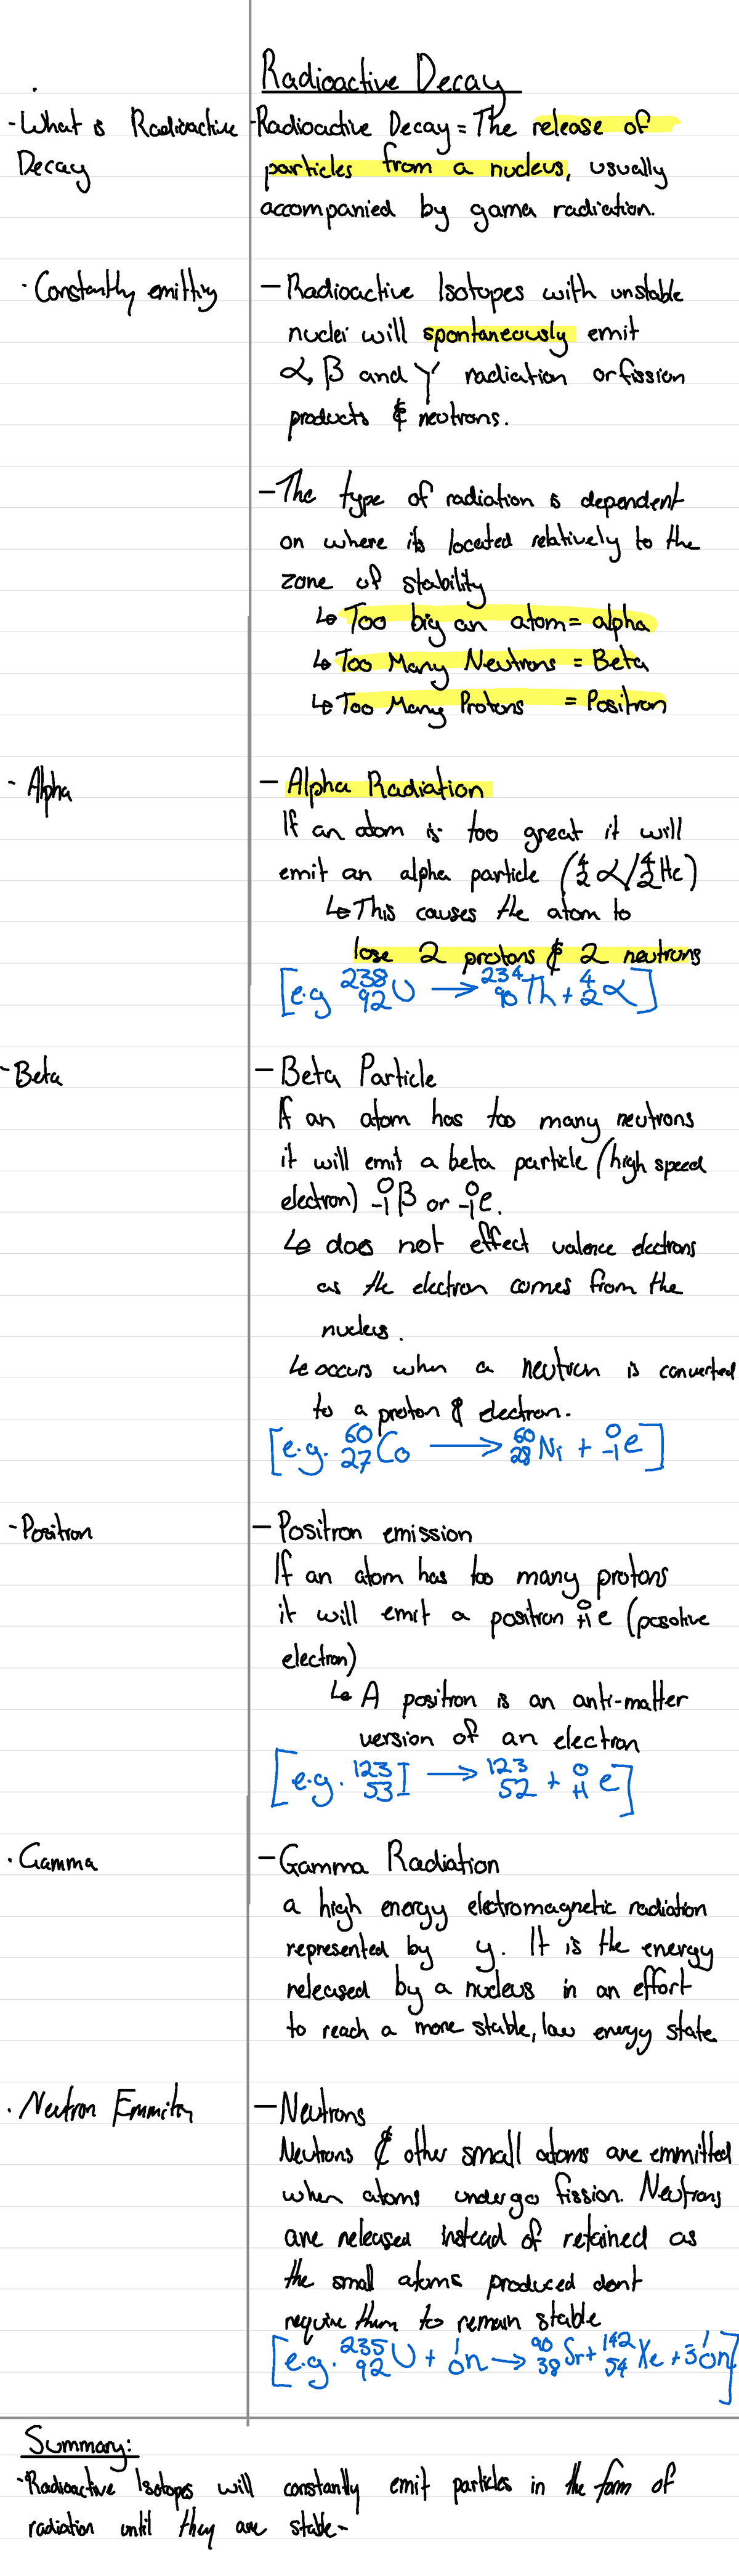 Radioactive Decay
- What is Radioactive
Decay
- Radioactive Decay = The release of
particles from a nucleus, usually
accompanied by gama radiation.
· Constantly emitting
- Radioactive Isotopes with unstable
nuclei will spontaneously emit
α, β and γ radiation or fission
products & neutrons.
- The type of radiation is dependent
on where its located relatively to the
zone of stability
↳ Too big an atom = alpha
↳ Too Many Neutrons = Beta
↳ Too Many Protons = Positron
- Alpha
- Alpha Radiation
If an atom is too great it will
emit an alpha particle (⁴₂α/⁴₂He)
↳ This causes the atom to
lose 2 protons & 2 neutrons
[e.g ²³⁸₉₂U → ²³⁴₉₀Th + ⁴₂α]
- Beta
- Beta Particle
If an atom has too many neutrons
it will emit a beta particle (high speed
electron) ⁰₋₁β or ⁰₋₁e.
↳ does not effect valence electrons
as the electron comes from the
nucleus.
↳ occurs when a neutron is converted
to a proton & electron.
[e.g. ⁶⁰₂₇Co → ⁶⁰₂₈Ni + ⁰₋₁e]
- Positron
- Positron emission
If an atom has too many protons
it will emit a positron ⁰₊₁e (posotive
electron)
↳ A positron is an anti-matter
version of an electron
[e.g. ¹²³₅₃I → ¹²³₅₂ + ⁰₊₁e]
· Gamma
- Gamma Radiation
a high energy electromagnetic radiation
represented by y. It is the energy
released by a nucleus in an effort
to reach a more stable, low energy state
· Neutron
- Neutrons
Neutrons & other small atoms are emmitted
when atoms undergo fission. Neutrons
are released instead of retained as
the small atoms produced dont
require them to remain stable
[e.g. ²³⁵₉₂U + ¹₀n → ⁹⁰₃₈Sr + ¹⁴²₅₄Xe + 3¹₀n]
Summary:
- Radioactive Isotopes will constantly emit particles in the form of
radiation until they are stable-